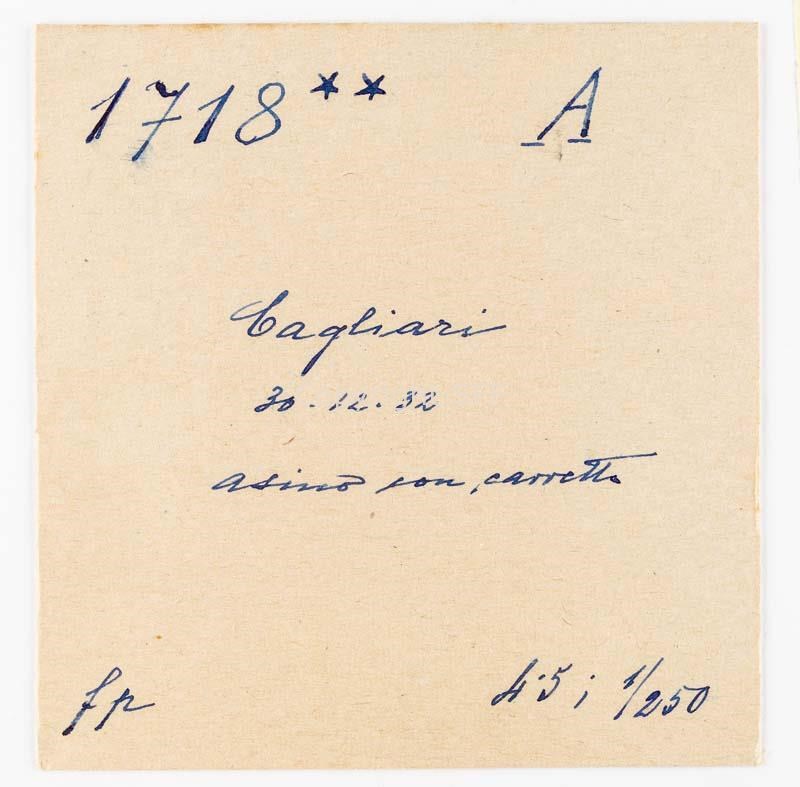 1718** A
Cagliari
30-12-32
asino con carretto
fp
4.5; 1/250